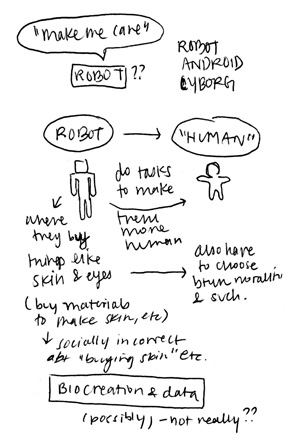 "make me care"
ROBOT ??
ROBOT
ANDROID
CYBORG
ROBOT
"HUMAN"
do tasks
to make
them
more
human
where
they buy
things like
skin & eyes
also have
to choose
btwn morality
& such.
(buy materials
to make skin, etc)
socially incorrect
abt "buying skin" etc.
BIOCREATION & data
(possibly) - not really??